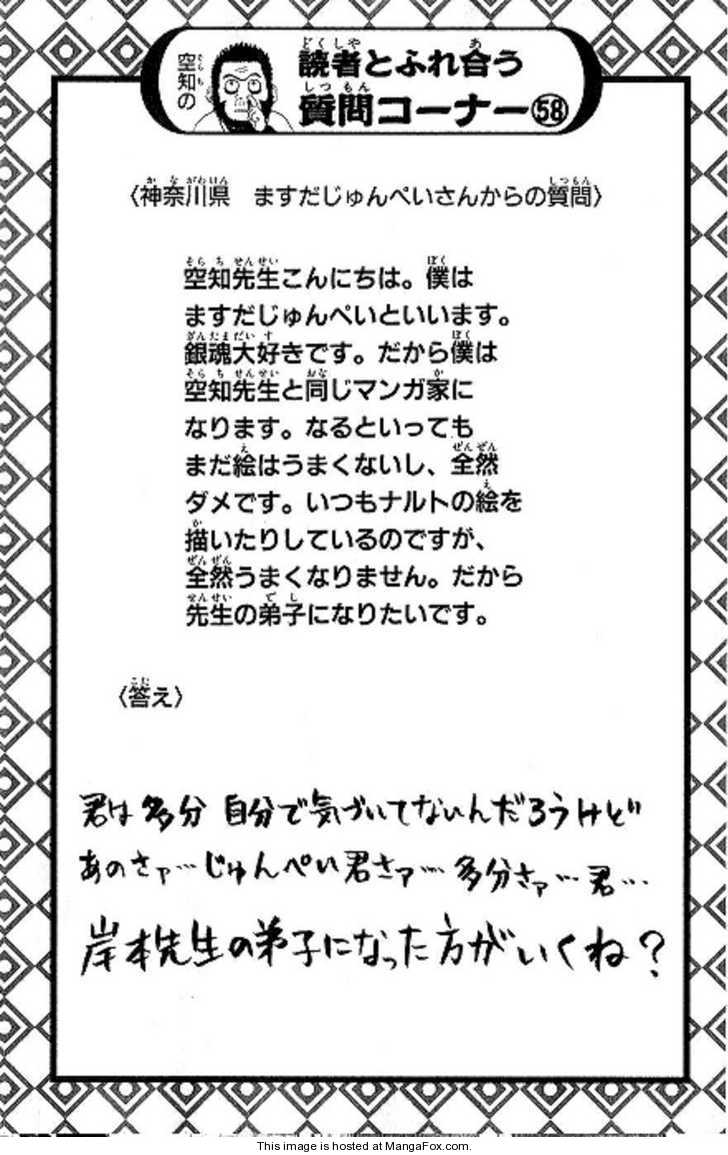 空知の
読者とふれ合う
質問コーナー58
〈神奈川県　ますだじゅんぺいさんからの質問〉
空知先生こんにちは。僕は
ますだじゅんぺいといいます。
銀魂大好きです。だから僕は
空知先生と同じマンガ家に
なります。なるといっても
まだ絵はうまくないし、全然
ダメです。いつもナルトの絵を
描いたりしているのですが、
全然うまくなりません。だから
先生の弟子になりたいです。
〈答え〉
君は多分 自分で気づいてないんだろうけど
あのさァ…じゅんぺい君さァ…多分さァ…君…
岸本先生の弟子になった方がいくね？
This image is hosted at MangaFox.com.